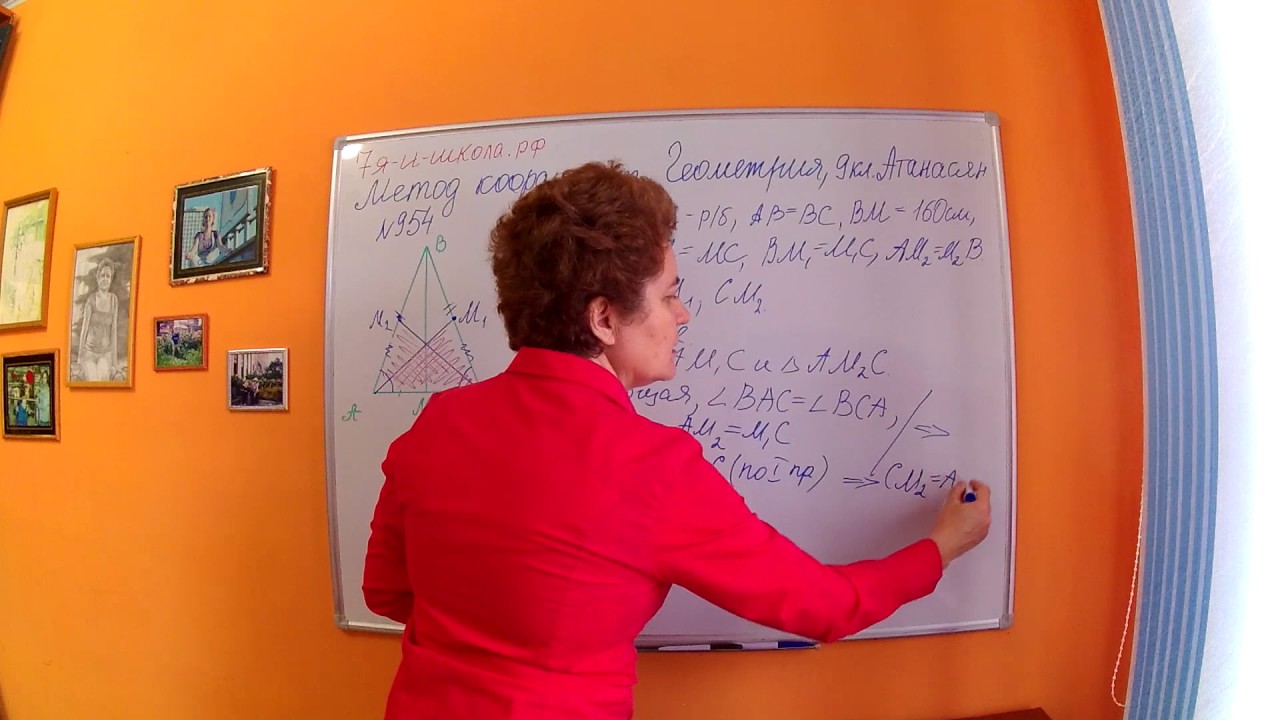 7я-и-школа.рф
Метод Геометрия, 9кл. Атанасян
№954
- р/б, AB=BC, BM = 160см,
= MC, BM₁=M₁C, AM₂=M₂B.
CM₂.
AM₁C и △ AM₂C.
∠BAC=∠BCA,
AM₂=M₁C
=>
(по I пр) => CM₂=A
B
M₂
M₁
A